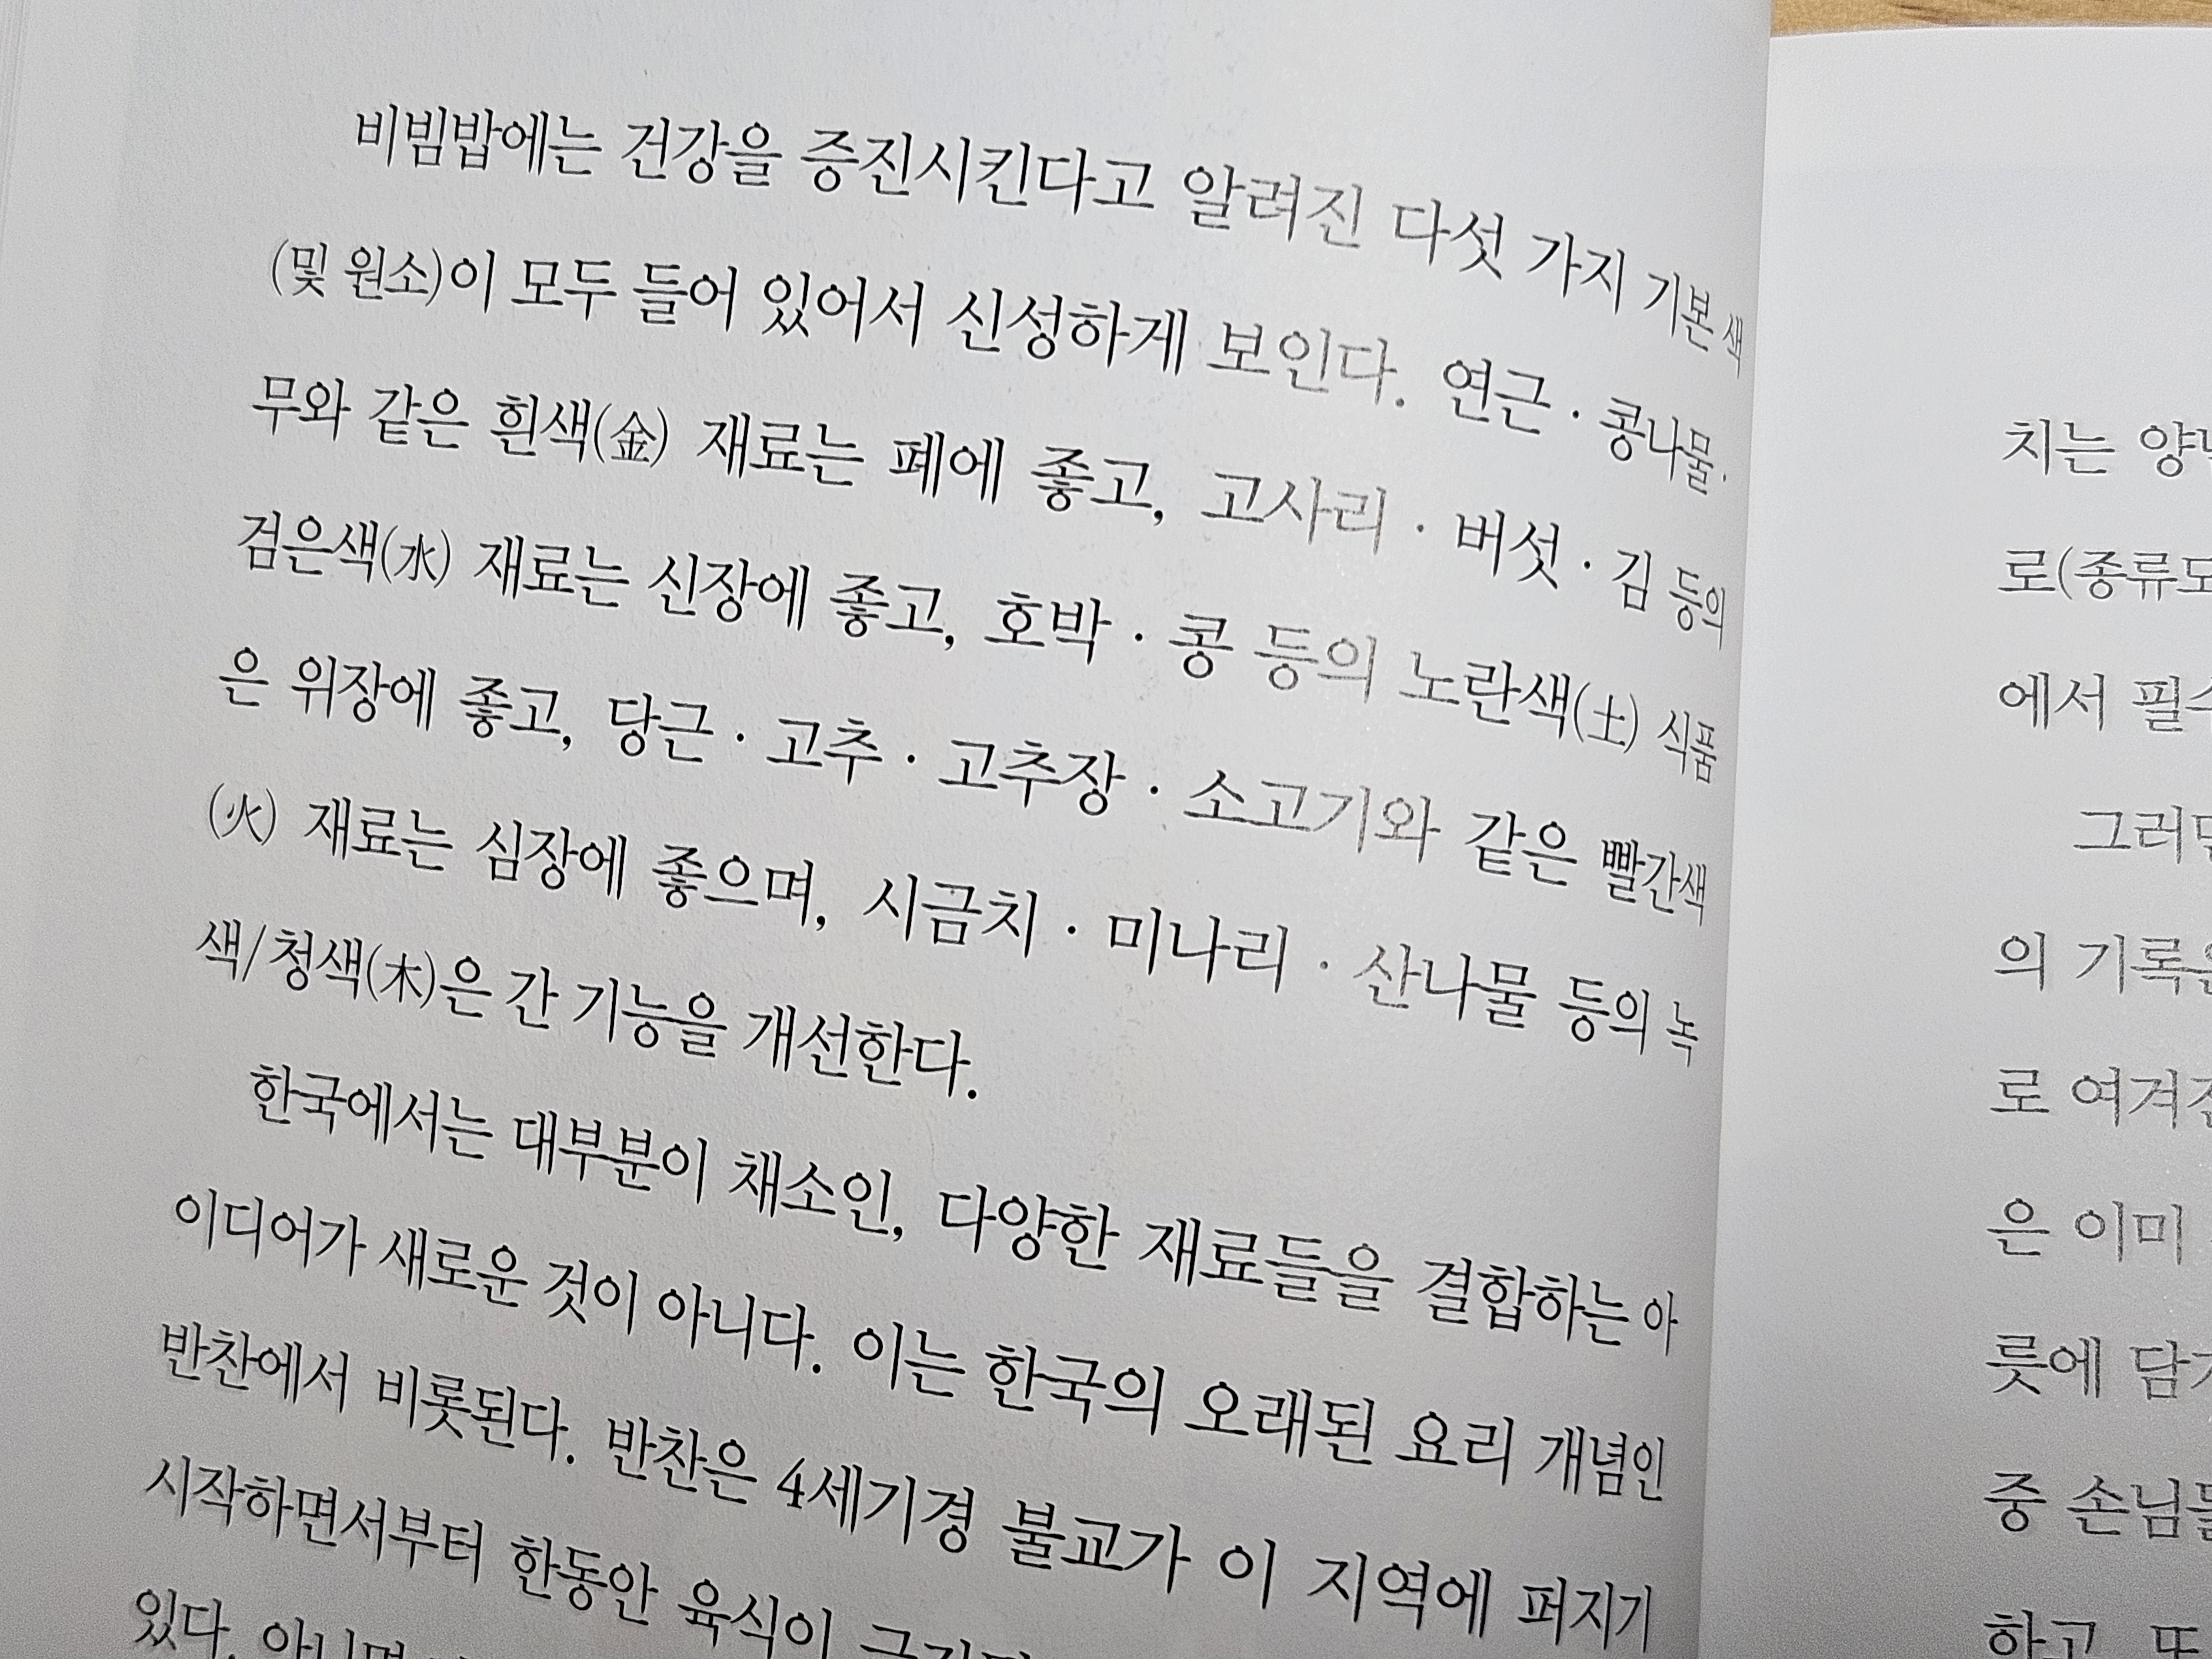 비빔밥에는 건강을 증진시킨다고 알려진 다섯 가지 기본 색
(및 원소)이 모두 들어 있어서 신성하게 보인다. 연근 · 콩나물 ·
무와 같은 흰색(金) 재료는 폐에 좋고, 고사리 · 버섯 · 김 등의
검은색(水) 재료는 신장에 좋고, 호박 · 콩 등의 노란색(土) 식품
은 위장에 좋고, 당근 · 고추 · 고추장 · 소고기와 같은 빨간색
(火) 재료는 심장에 좋으며, 시금치 · 미나리 · 산나물 등의 녹
색/청색(木)은 간 기능을 개선한다.
한국에서는 대부분이 채소인, 다양한 재료들을 결합하는 아
이디어가 새로운 것이 아니다. 이는 한국의 오래된 요리 개념인
반찬에서 비롯된다. 반찬은 4세기경 불교가 이 지역에 퍼지기
시작하면서부터 한동안 육식이
있다. 아니면
치는
로(종류도
에서
그러면
의 기록은
로 여겨진
은 이미
릇에
중 손님들
하고, 또